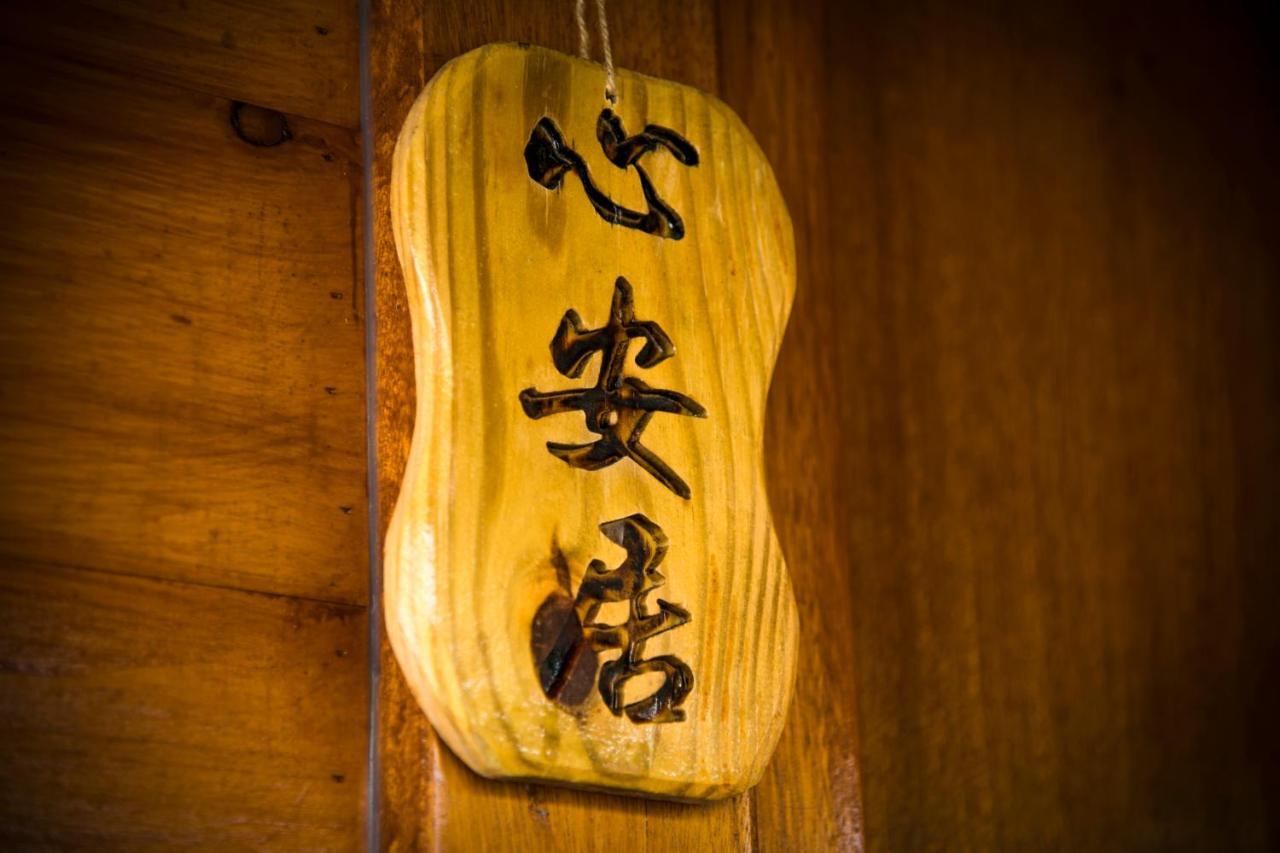 心安居